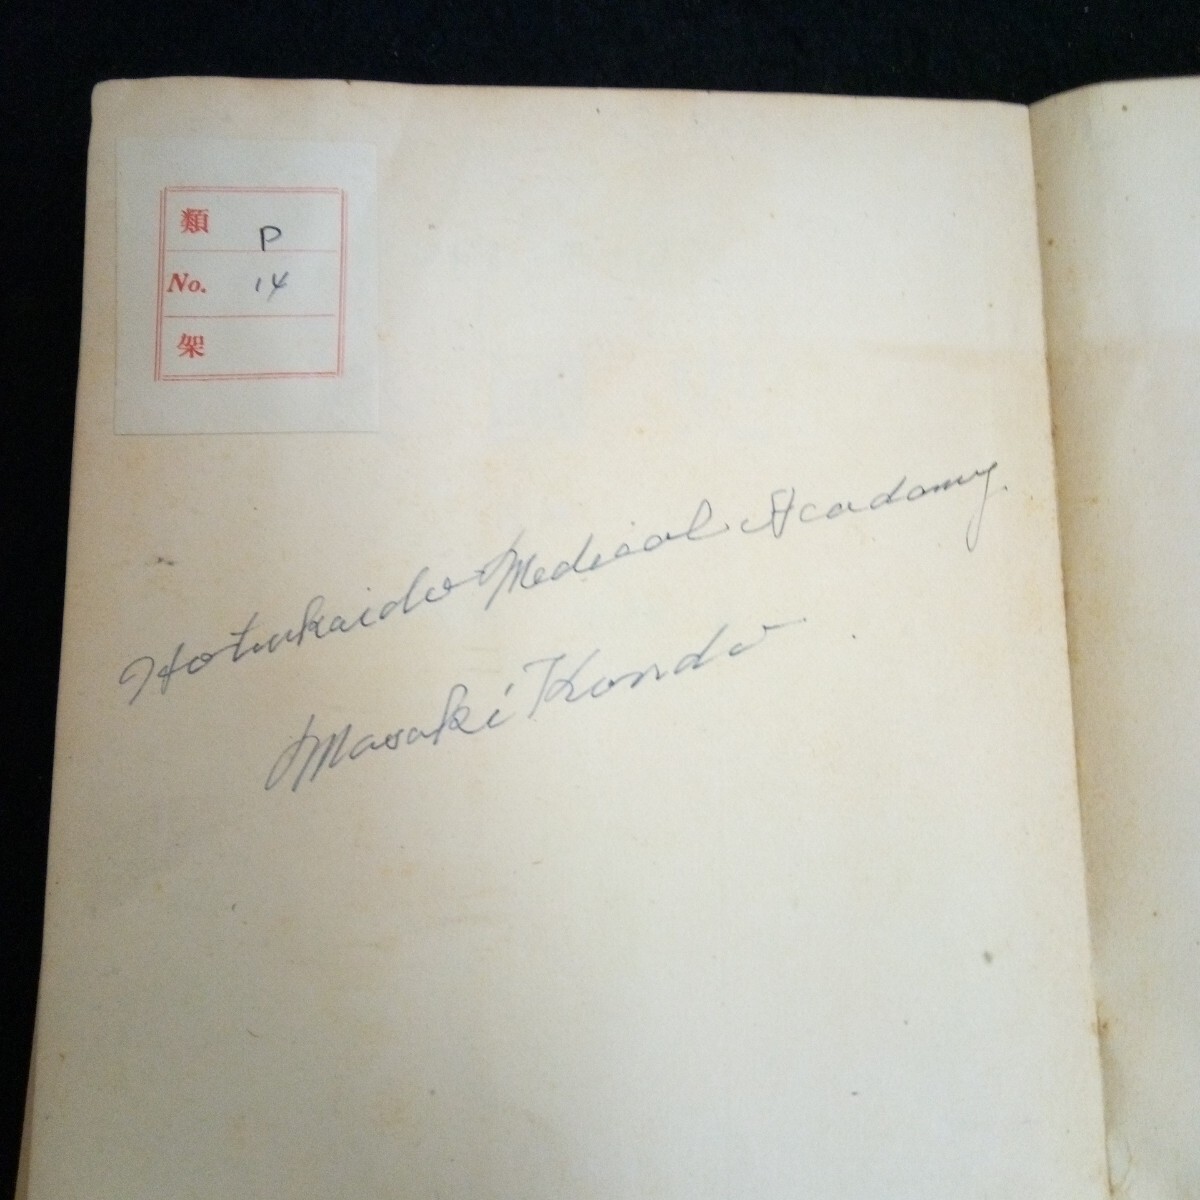 類 P
No. 14
架
Hotukaido Medical Academy.
Masaki Kondo